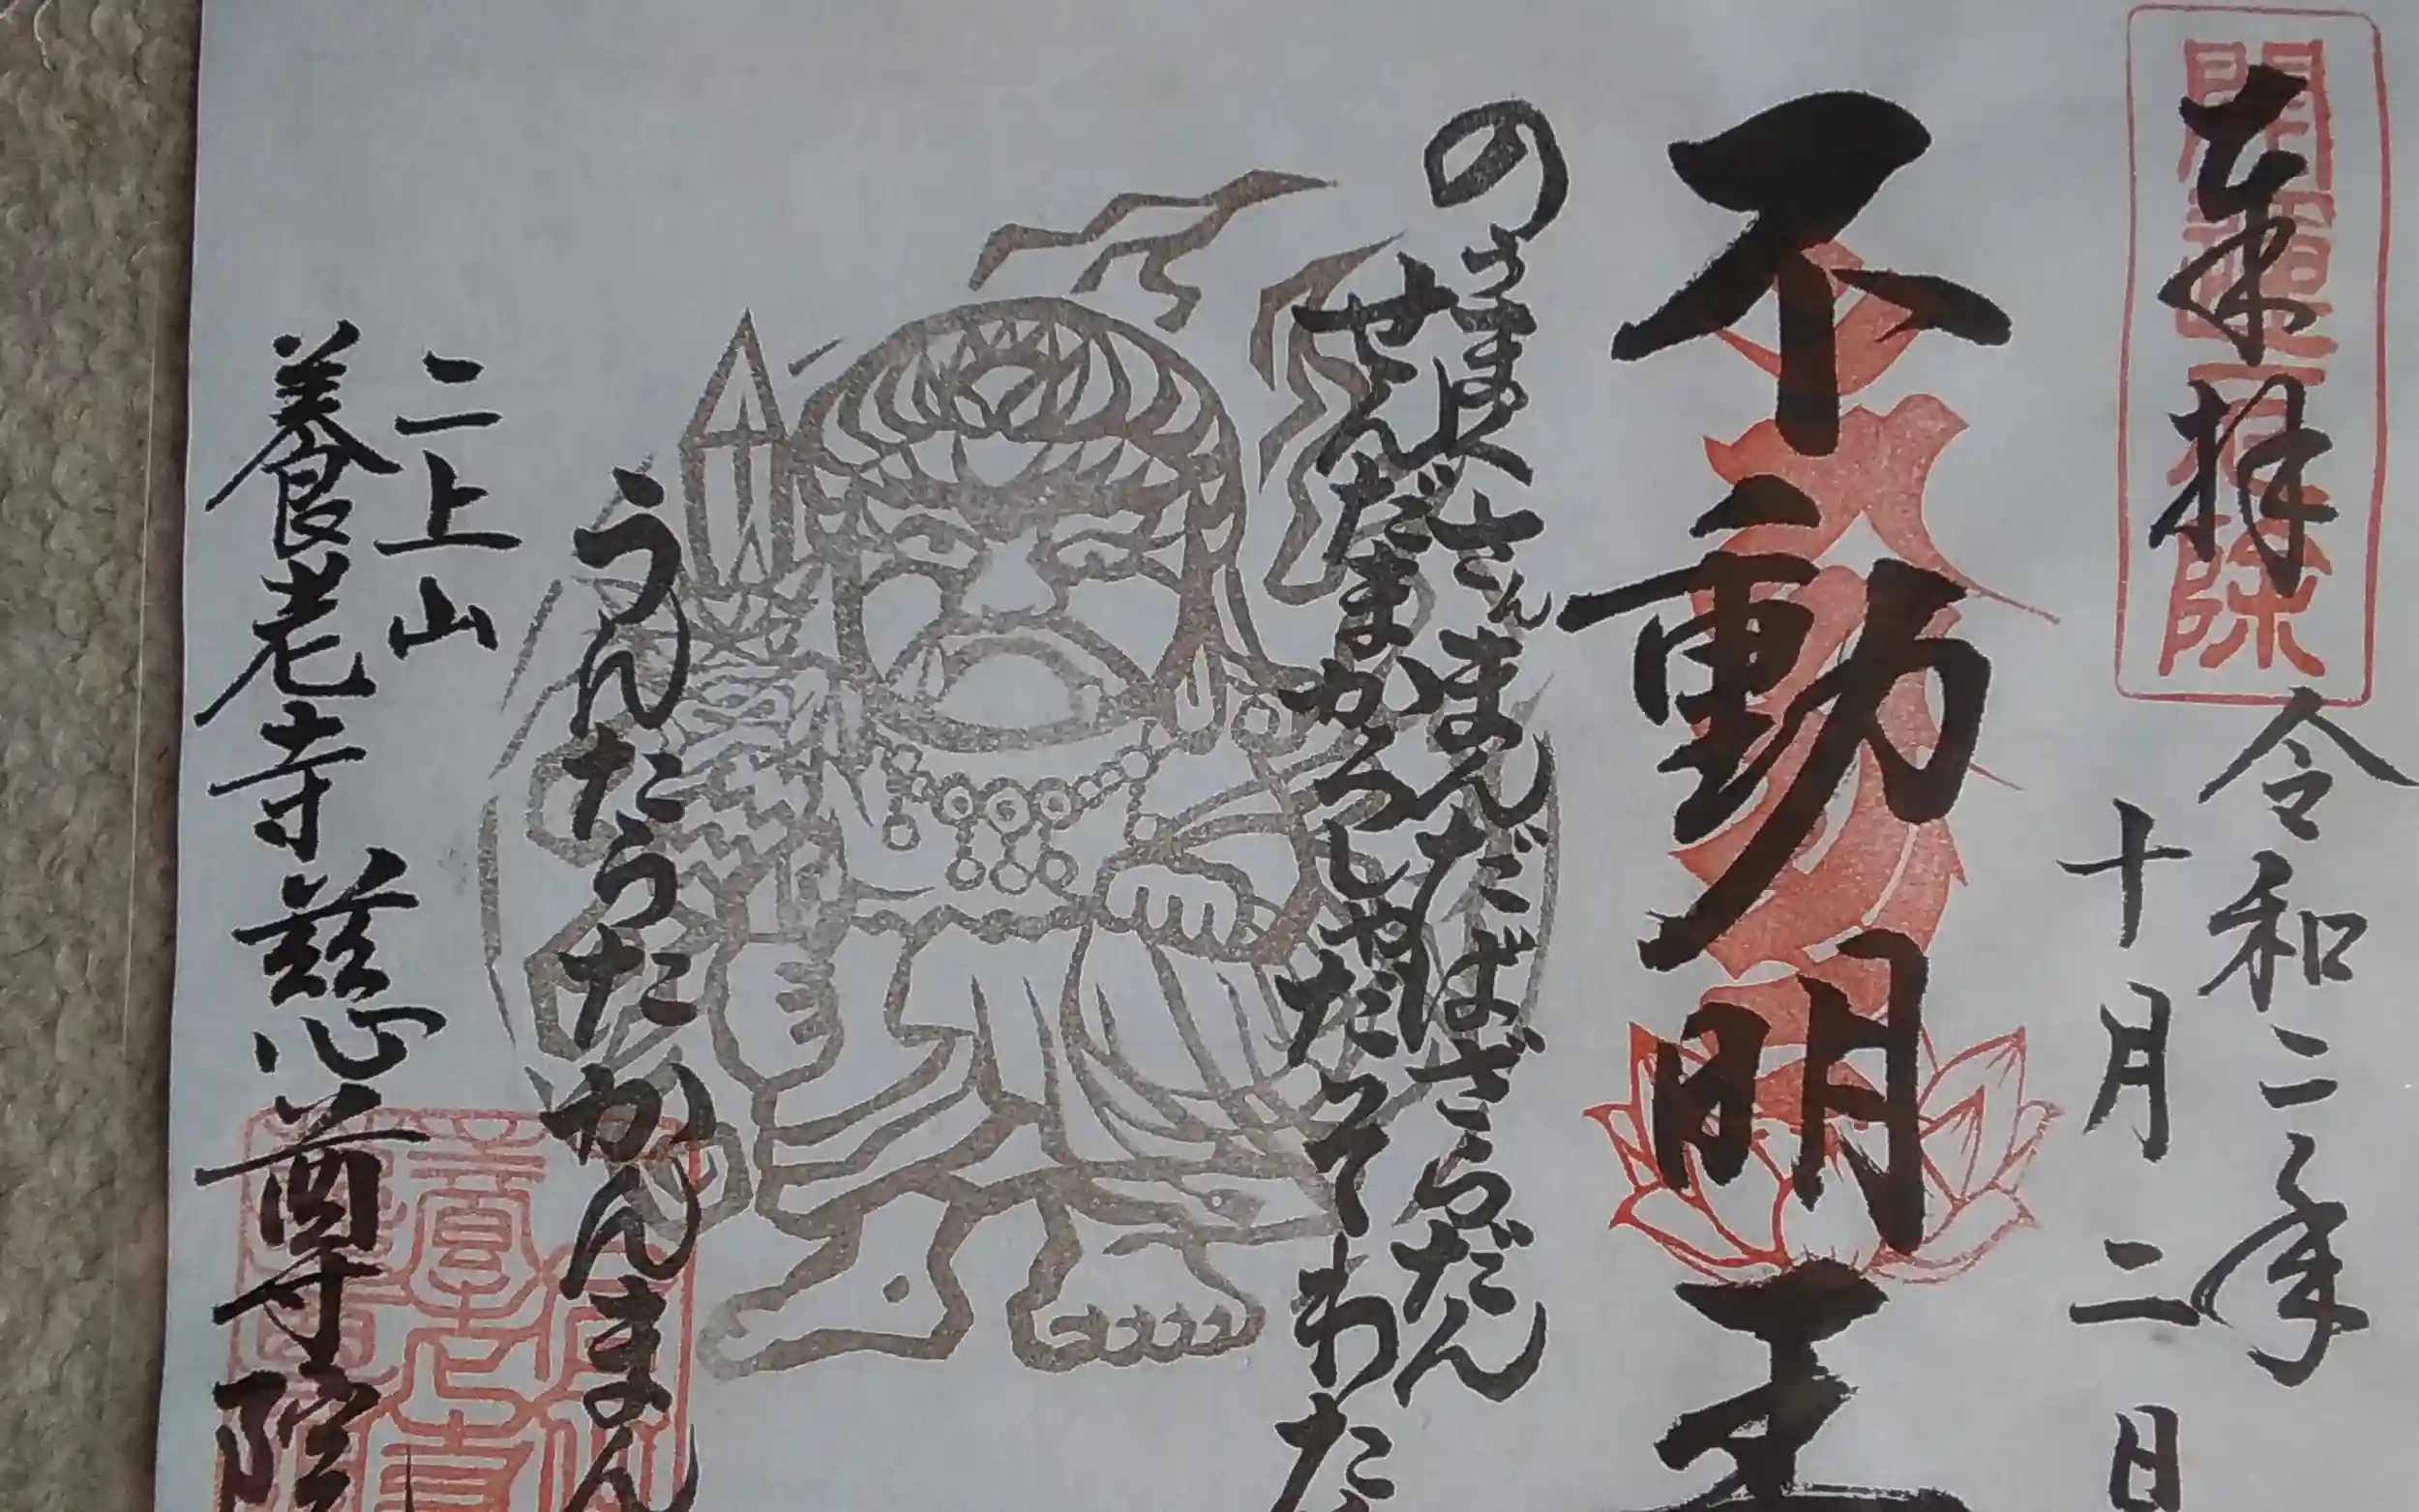 奉拝
令和二年
十月二日
不動明王
のうまくさんまんだばざらだん
せんだまかろしゃだそわた
うんたらたかんまん
二上山
養老寺 慈尊院